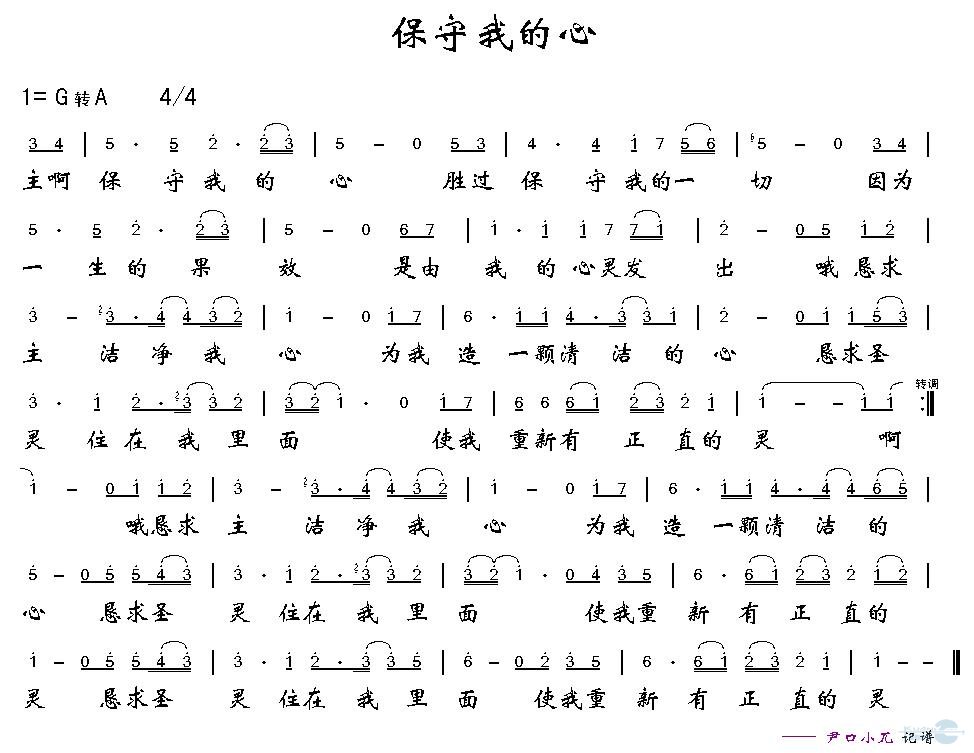 保守我的心
1= G 转 A 4/4
3 4 | 5 · 5 2 · 2 3 | 5 – 0 5 3 | 4 · 4 1 7 5 6 | 6 5 – 0 3 4 |
主啊 保 守 我 的 心 胜过 保 守 我的一 切 因为
5 · 5 2 · 2 3 | 5 – 0 6 7 | 1 · 1 1 7 7 1 | 2 – 0 5 1 2 |
一 生 的 果 效 是由 我 的 心灵发 出 哦 恳求
3 – 2 3 · 4 4 3 2 | 1 – 0 1 7 | 6 · 1 1 4 · 3 3 1 | 2 – 0 1 1 5 3 |
主 洁 净 我 心 为我 造 一颗清 洁 的 心 恳求圣
转调
3 · 1 2 · 2 3 3 2 | 3 2 1 · 0 1 7 | 6 6 6 1 2 3 2 1 | 1 – – 1 1 :||
灵 住 在 我 里 面 使我 重新有 正 直的 灵 啊
1 – 0 1 1 2 | 3 – 2 3 · 4 4 3 2 | 1 – 0 1 7 | 6 · 1 1 4 · 4 4 6 5 |
哦恳求 主 洁 净 我 心 为我 造 一颗清 洁 的
5 – 0 5 5 4 3 | 3 · 1 2 · 2 3 3 2 | 3 2 1 · 0 4 3 5 | 6 · 6 1 2 3 2 1 2 |
心 恳求圣 灵 住在 我 里 面 使我重 新 有 正 直的
1 – 0 5 5 4 3 | 3 · 1 2 · 3 3 5 | 6 – 0 2 3 5 | 6 · 6 1 2 3 2 1 | 1 – – ||
灵 恳求圣 灵 住在 我 里 面 使我重 新 有 正 直的 灵
—— 尹口小兀 记谱